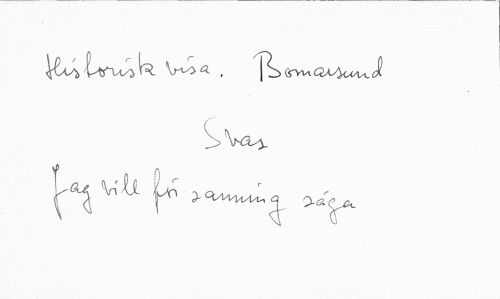 Historisk visa. Bomarsund
Svar
Jag vill för sanning säga